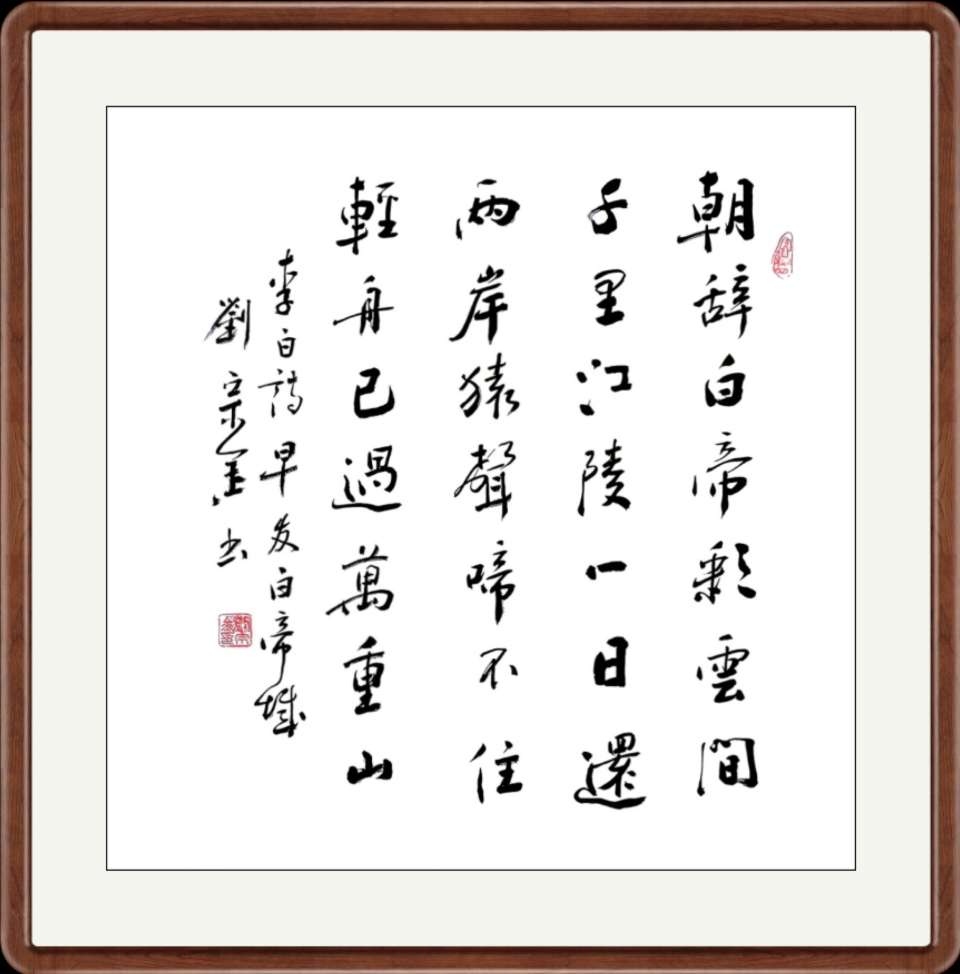 朝辞白帝彩雲間
千里江陵一日還
两岸猿聲啼不住
輕舟已過萬重山
李白詩早发白帝城
劉宗金书